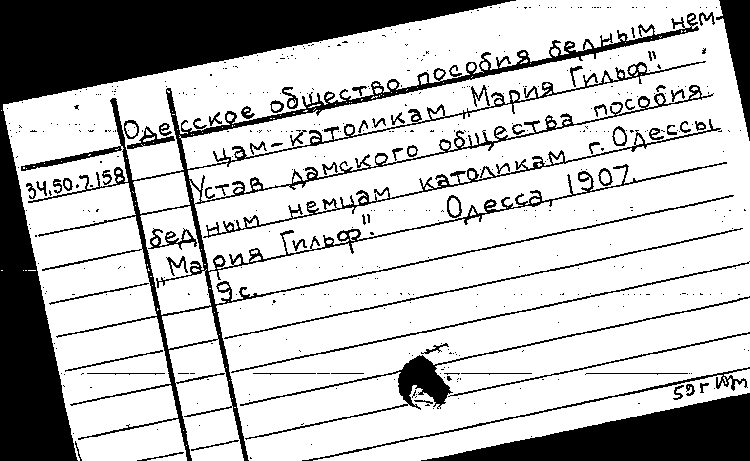 Одесское общество пособия бедным нем-
цам-католикам „Мария Гильф".
34.50.7.158
Устав дамского общества пособия
бедным немцам католикам г. Одессы
„Мария Гильф". Одесса, 1907.
9с.
59г